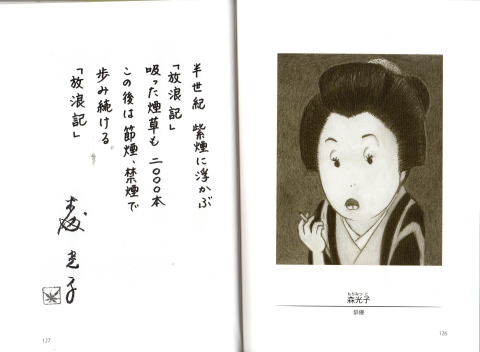 もりみつ こ
森光子
俳優
126
半世紀 紫煙に浮かぶ
「放浪記」
吸った煙草も 二〇〇〇本
この後は 節煙、禁煙で
歩み続ける
「放浪記」
森 光子
127